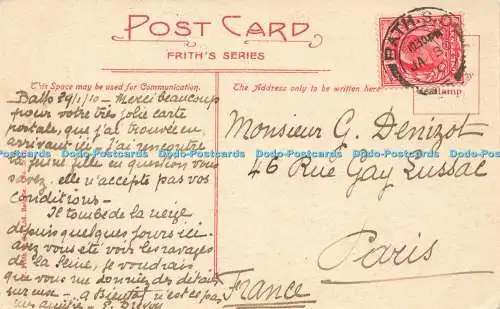 POST CARD
FRITH'S SERIES
This Space may be used for Communication.
The Address only to be written here
Bath 29/1/10 - Merci beaucoup
pour votre très jolie carte
postale, que j'ai trouvée en
arrivant ici - j'ai rencontré
la jeune fille en question vous
savez, elle n'accepte pas vos
conditions -
Il tombe de la neige
depuis quelques jours ici.
avez vous été voir les ravages
de la Seine, je voudrais
que vous me donniez des détails
sur eux - à Bientôt n'est ce pas
Monsieur G. Denizot
46 Rue Gay Lussac
Paris
France
BATH
Stamp
Dodo-Postcards